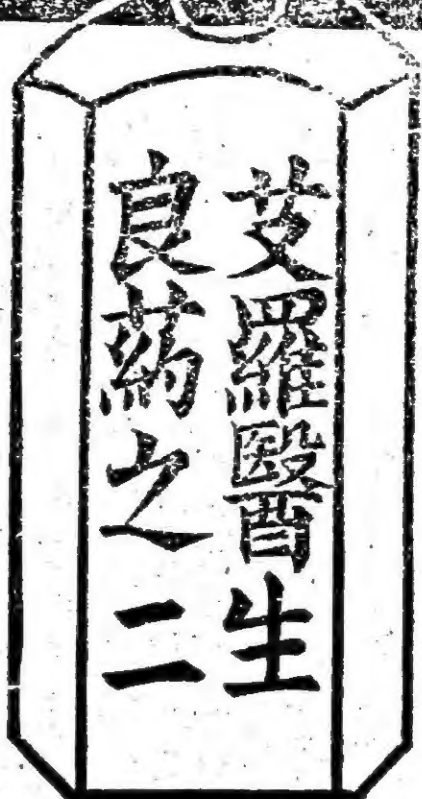 芆羅醫生
良葯之二